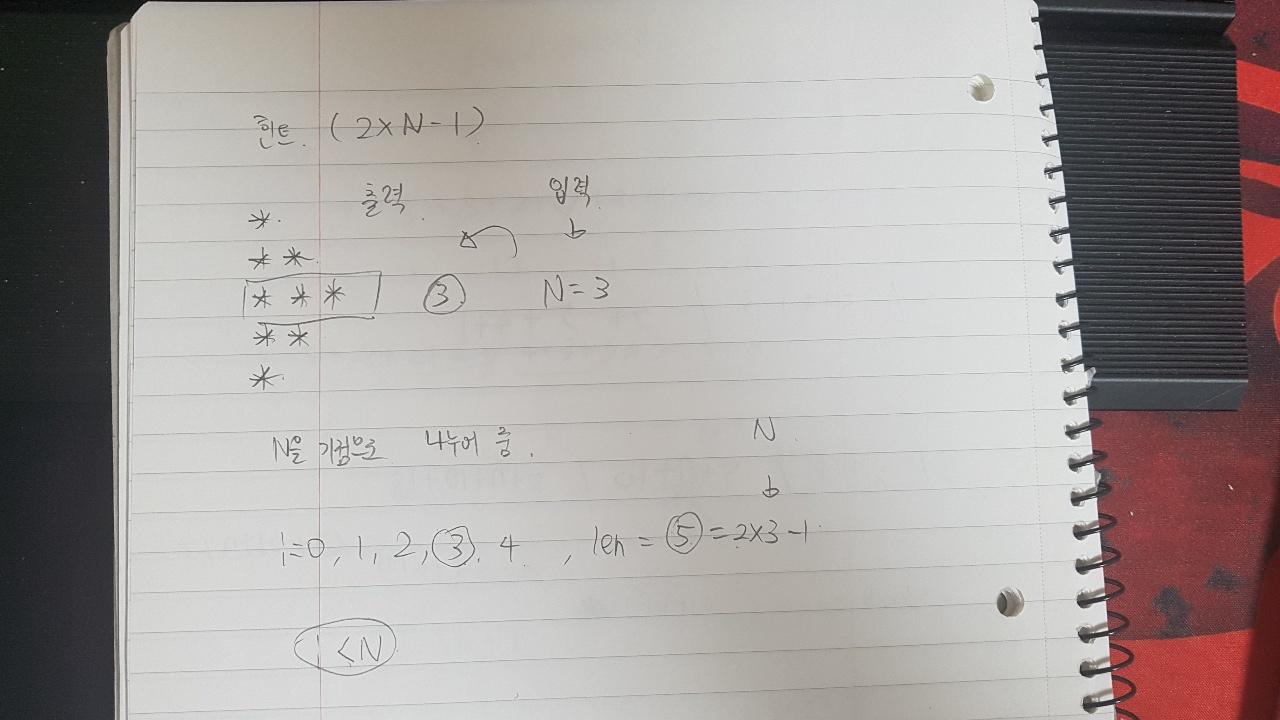 힌트. (2×N-1)
출력. 입력.
*.
* *.
* * * ③ N=3
* *
*.
N을 기점으로 나누어 줌.
N.
i=0, 1, 2, ③. 4. , len = ⑤ = 2×3-1
i<N